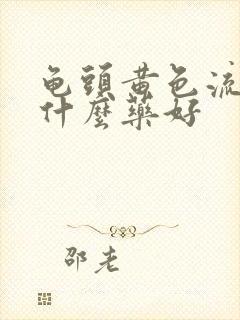 龟頭黄色流
什麼藥好
邵老